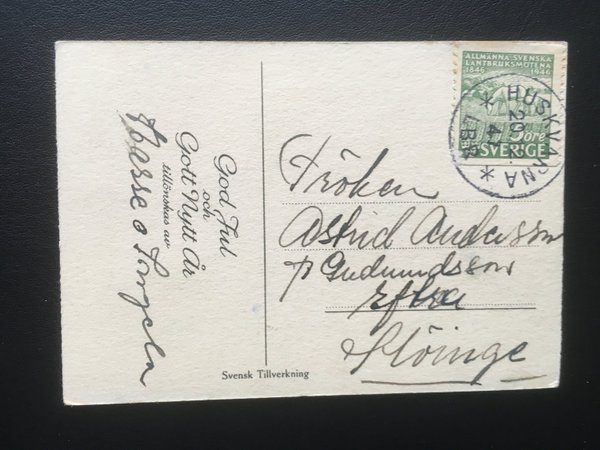 God Jul
och
Gott Nytt År
tillönskas av
Svensk Tillverkning
ALLMÄNNA SVENSKA
LANTBRUKSMÖTENA
1846 1946
5 öre
SVERIGE
Fröken
Astrid Andersson
Gudmundsson
Eftra
Slöinge